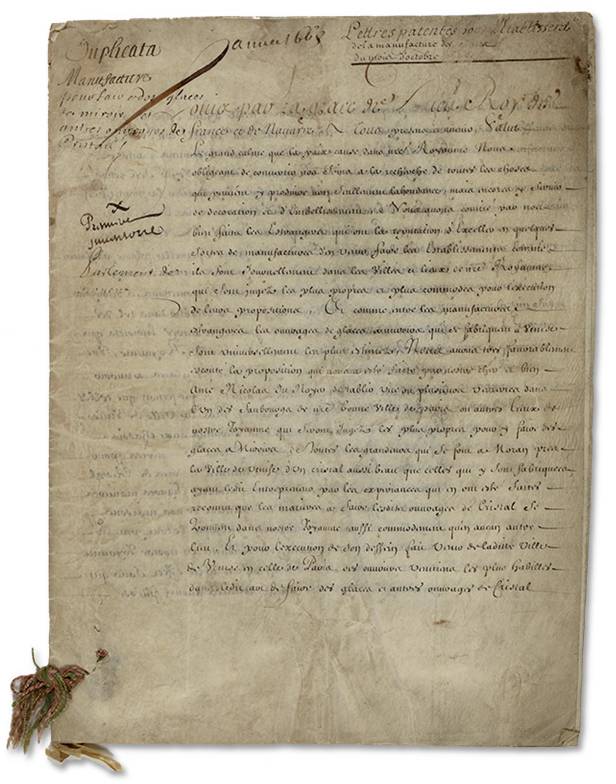 Duplicata
Janvier 1683
Lettres patentes pour l'Establissement
de la manufacture des
du mois d'octobre
Manufacture
pour faire des glaces
de miroirs et
autres ouvrages de
Cristal
Premier
Parlement de
Louis par la grace de Dieu Roy de
france et de Navarre A tous presens et avenir Salut
Le grand calme que la paix cause dans nre Royaume Nous
obligeant de convertir nos soins a la recherche de toutes les choses
qui peuvent y produire non seulement labondance mais encores y servir
de decoration et d'Embellissement Nous avons convié par nos
bien faits les Estrangers qui ont la reputation d'Exceller en quelques
sortes de manufactures d'en venir faire les Establissements
ils sont Journellement dans les Villes et lieux de nre Royaume
qui sont jugez les plus propres et plus commodes pour l'execution
de leurs propositions. Et comme entre les manufactures
Estrangeres les ouvrages de glaces qui se fabriquent a Venise
sont universellement les plus estimez Nous avons tres favorablement
escouté la proposition qui nous a esté faite par nostre cher et bien
amé Nicolas du Noyer d'establir une ou plusieurs verreries dans
l'un des faubourgs de nre bonne Ville de paris ou autres lieux de
nostre Royaume qui seront jugez les plus propres pour y faire des
glaces a Miroirs de toutes les grandeurs qui se font a Moran pres
la Ville de Venise d'un cristal aussi beau que celles qui y sont fabriquées
ayant ledit Entrepreneur par les experiences qui en ont esté faites
reconnu que les matieres a faire lesdits ouvrages de Cristal se
trouvent dans nostre Royaume aussi commodement qu'en aucun autre
lieu. Et pour l'execution de son dessein fait venir de ladite Ville
de Venise en celle de Paris des ouvriers venitiens les plus habilles
dans ledit art de faire des glaces et autres ouvrages de Cristal